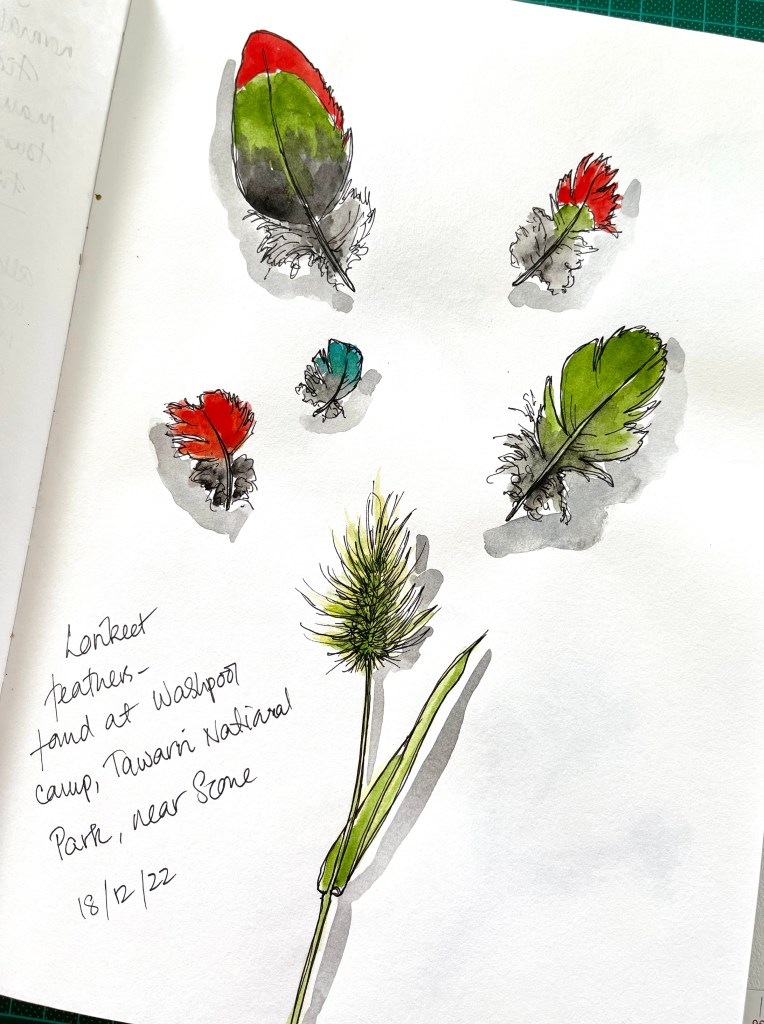 Lorikeet
feathers-
found at Washpool
camp, Towarri National
Park, near Scone
18/12/22